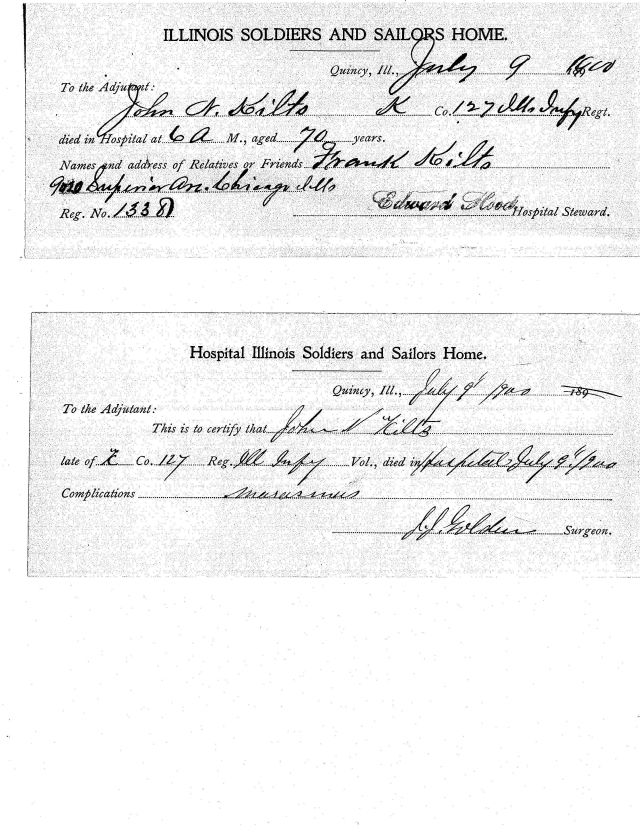 ILLINOIS SOLDIERS AND SAILORS HOME.
Quincy, Ill., July 9 1900
To the Adjutant:
John N. Kilts K Co. 127 Ills Infy Regt.
died in Hospital at 6 A M., aged 70 years.
Names and address of Relatives or Friends Frank Kilts
Superior Av. Chicago Ills
Reg. No. 1338
Edward Flood Hospital Steward.
Hospital Illinois Soldiers and Sailors Home.
Quincy, Ill., July 9" 1900 189
To the Adjutant:
This is to certify that John N Kilts
late of K Co. 127 Reg. Ill Infy Vol., died in Hospital July 9" 1900
Complications marasmus
Surgeon.